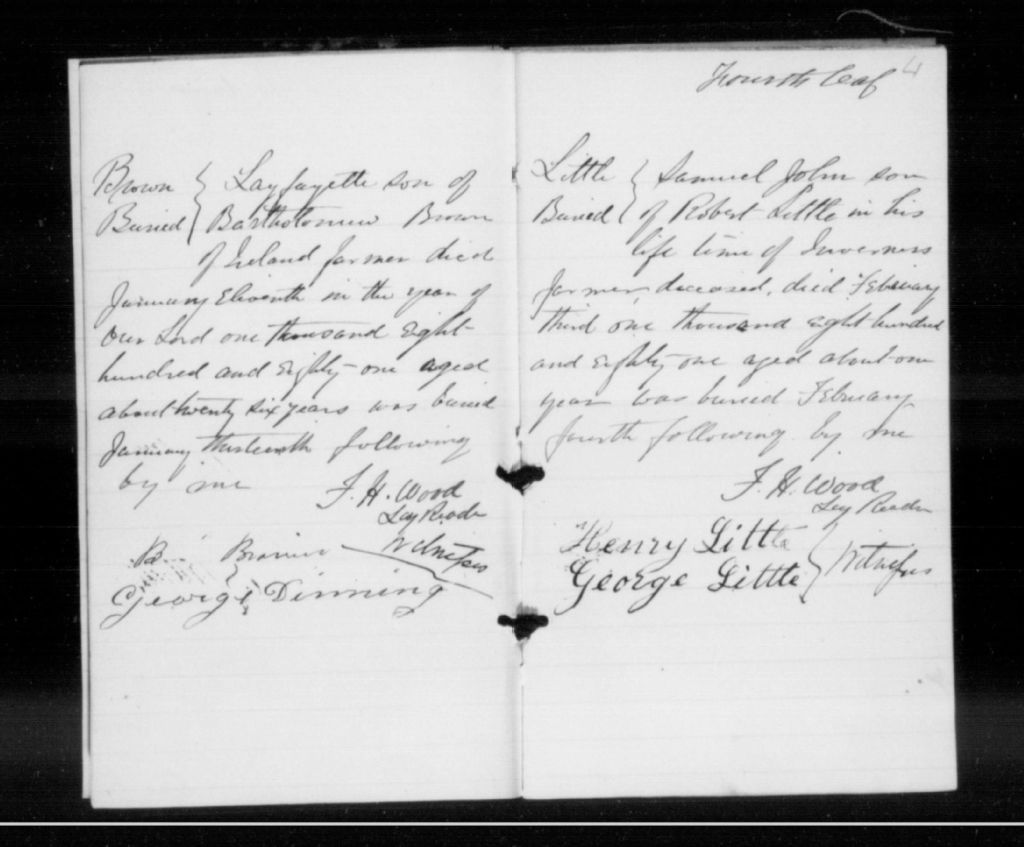 Brown } Layfayette son of
Buried } Bartholomew Brown
of Ireland farmer died
January Eleventh in the year of
Our Lord one thousand eight
hundred and Eighty-one aged
about twenty six years was buried
January thirteenth following
by me
F. H. Wood
Lay Reader
B. Brown
George Dinning } Witnesses
4
Fourth leaf
Little } Samuel John son
Buried } of Robert Little in his
life time of Inverness
farmer, deceased, died February
third one thousand eight hundred
and eighty-one aged about one
year was buried February
fourth following by me
F. H. Wood
Lay Reader
Henry Little
George Little } Witnesses